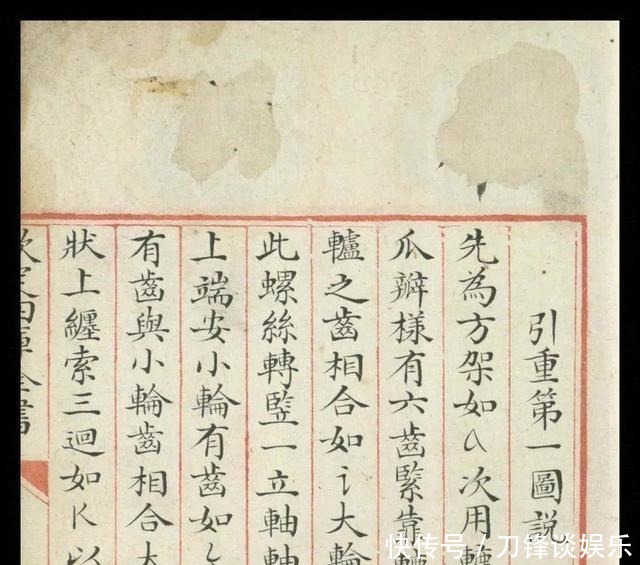 引重第一圖說
先為方架如a次用轆
瓜辦様有六齒緊靠轆
轤之齒相合如i大輪
此螺絲轉竪一立軸軸
上端安小輪有齒如
有齒與小輪齒相合大
狀上纏索三迴如K以
欽定四庫全書
快传号／刀锋谈娱乐